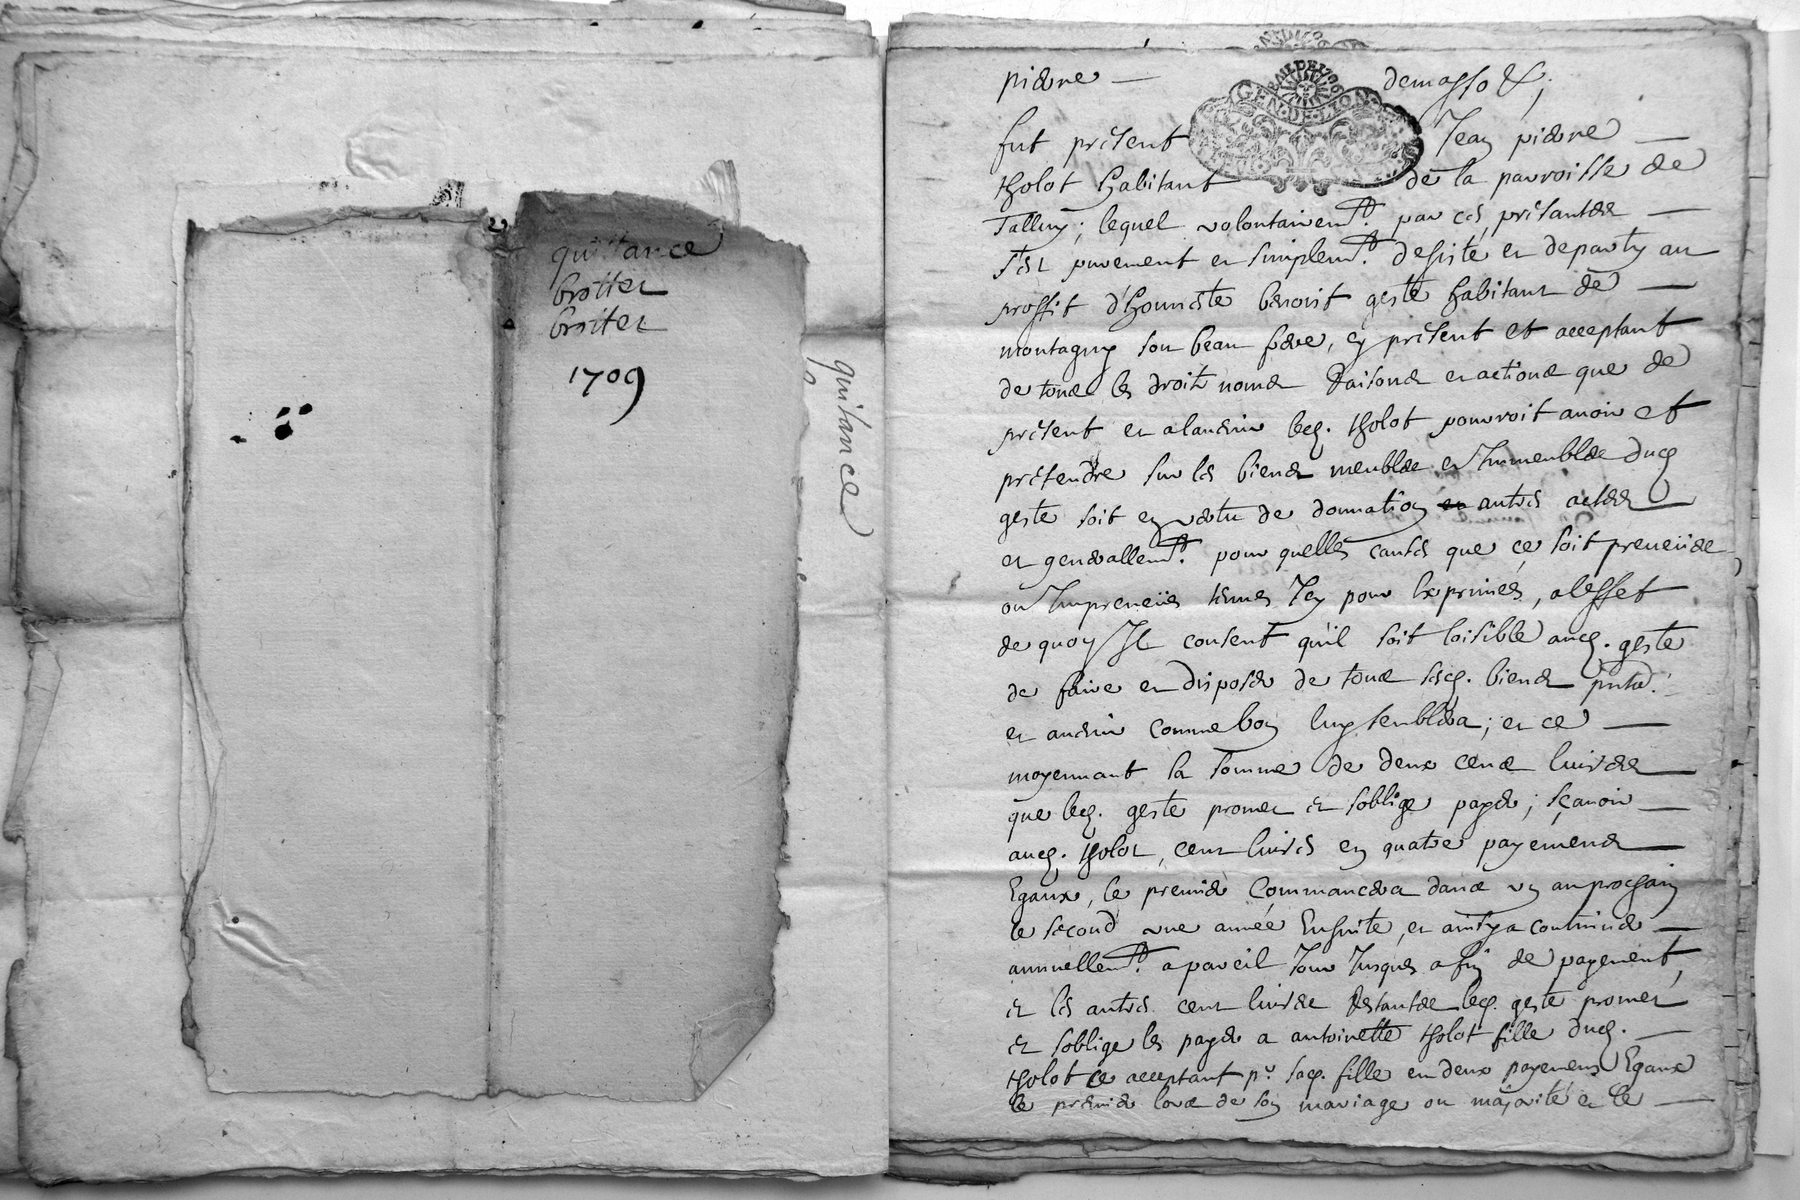 quittance
brottet
broitet
1709
quitance
pierre — demasso &;
GEN·DE·LYON
fut présent Jean pierre —
tholot habitant de la parroisse de
Talluy; lequel volontairemt. par ces présantes —
s'est purement et simplemt. desisté et departy au
proffit d'honneste benoist geste habitant de —
montagny son beau frere, cy présent et acceptant
de tous les droits noms Raisons et actions que de
présent et a ladvenir led. tholot pourroit avoir et
prétendre sur les biens meubles et Immeubles dud
geste soit en vertu de donnation et autres actes —
et generallemt. pour quelles causes que ce soit preveües
ou Impreveües tenues Icy pour Exprimées, a leffet
de quoy Il consent qu'il soit loisible aud. geste
de faire et disposer de tous sesd. biens pnts.
et advenir comme bon luy semblera; et ce —
moyennant la somme de deux cens livres
que led. geste promet et soblige payer; sçavoir —
aud. tholot, cent livres en quatre payements —
Egaux, le premier Commancera dans un an prochain
le second une année Ensuite, et ainsy a continuer —
annuellemt. a pareil Jour Jusques a fin de payement,
et les autres cent livres Restantes led. geste promet
et soblige les payer a antoinette tholot fille dud. —
tholot ce acceptant pr. sad. fille en deux payemens Egaux
le premier lors de son mariage ou majorité et le —